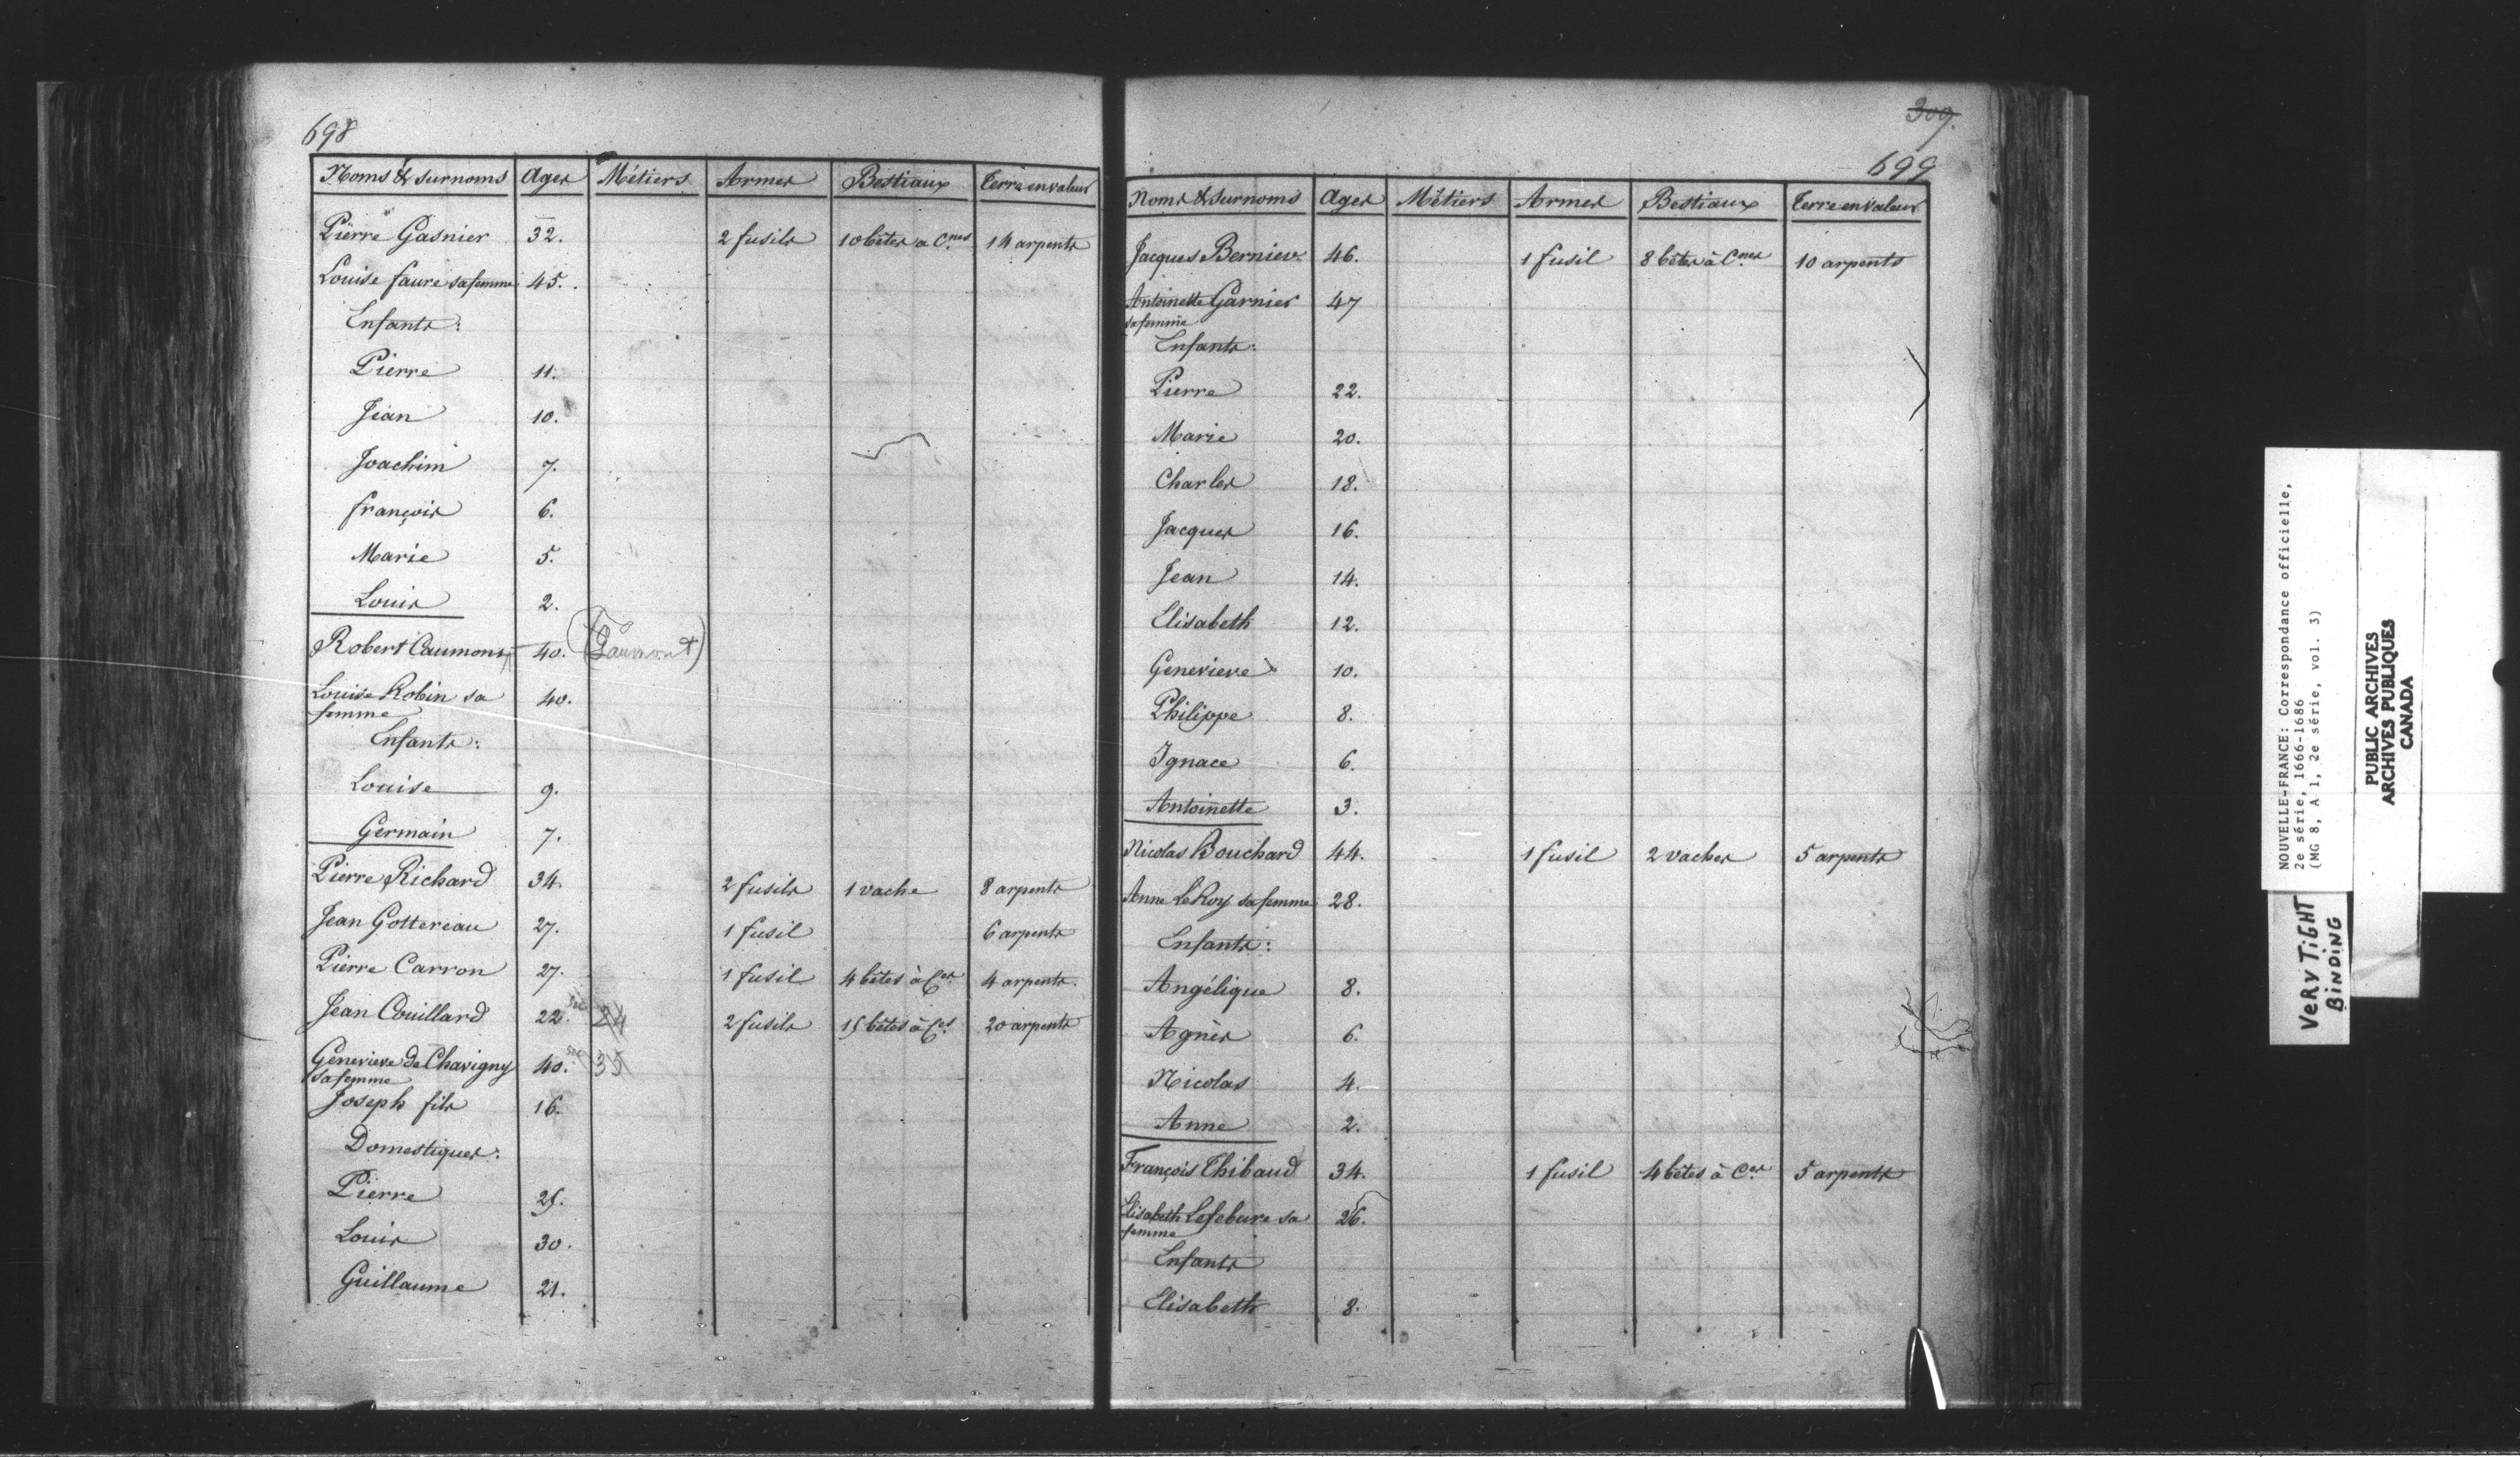 698
Noms & surnoms Ages Métiers Armes Bestiaux Terre en valeur
Pierre Gasnier 32. 2 fusils 10 bêtes à C.nes 14 arpents
Louise faure sa femme 45.
Enfants:
Pierre 11.
Jean 10.
Joachim 7.
françois 6.
Marie 5.
Louis 2.
Robert Caumont 40. (Gaumont)
Louise Robin sa 40.
femme
Enfants:
Louise 9.
Germain 7.
Pierre Richard 34. 2 fusils 1 vache 8 arpents
Jean Gottereau 27. 1 fusil 6 arpents
Pierre Carron 27. 1 fusil 4 bêtes à C.es 4 arpents.
Jean Couillard 22. sic 24 2 fusils 15 bêtes à C.es 20 arpents
Genevieve de Chavigny 40. sic 35
sa femme
Joseph fils 16.
Domestiques:
Pierre 25.
Louis 30.
Guillaume 21.
309.
699
Noms & surnoms Ages Métiers Armes Bestiaux Terre en valeur
Jacques Bernier 46. 1 fusil 8 bêtes à C.nes 10 arpents
Antoinette Garnier 47
sa femme
Enfants:
Pierre 22.
Marie 20.
Charles 18.
Jacques 16.
Jean 14.
Elisabeth 12.
Genevieve 10.
Philippe 8.
Ignace 6.
Antoinette 3.
Nicolas Bouchard 44. 1 fusil 2 vaches 5 arpents
Anne Le Roy sa femme 28.
Enfants:
Angélique 8.
Agnès 6.
Nicolas 4.
Anne 2.
François Thibaud 34. 1 fusil 4 bêtes à C.es 5 arpents
Elisabeth Lefebure sa 26.
femme
Enfants
Elisabeth 8.
NOUVELLE-FRANCE: Correspondance officielle,
2e série, 1666-1686
(MG 8, A 1, 2e série, vol. 3)
PUBLIC ARCHIVES
ARCHIVES PUBLIQUES
CANADA
VERY TIGHT
BINDING